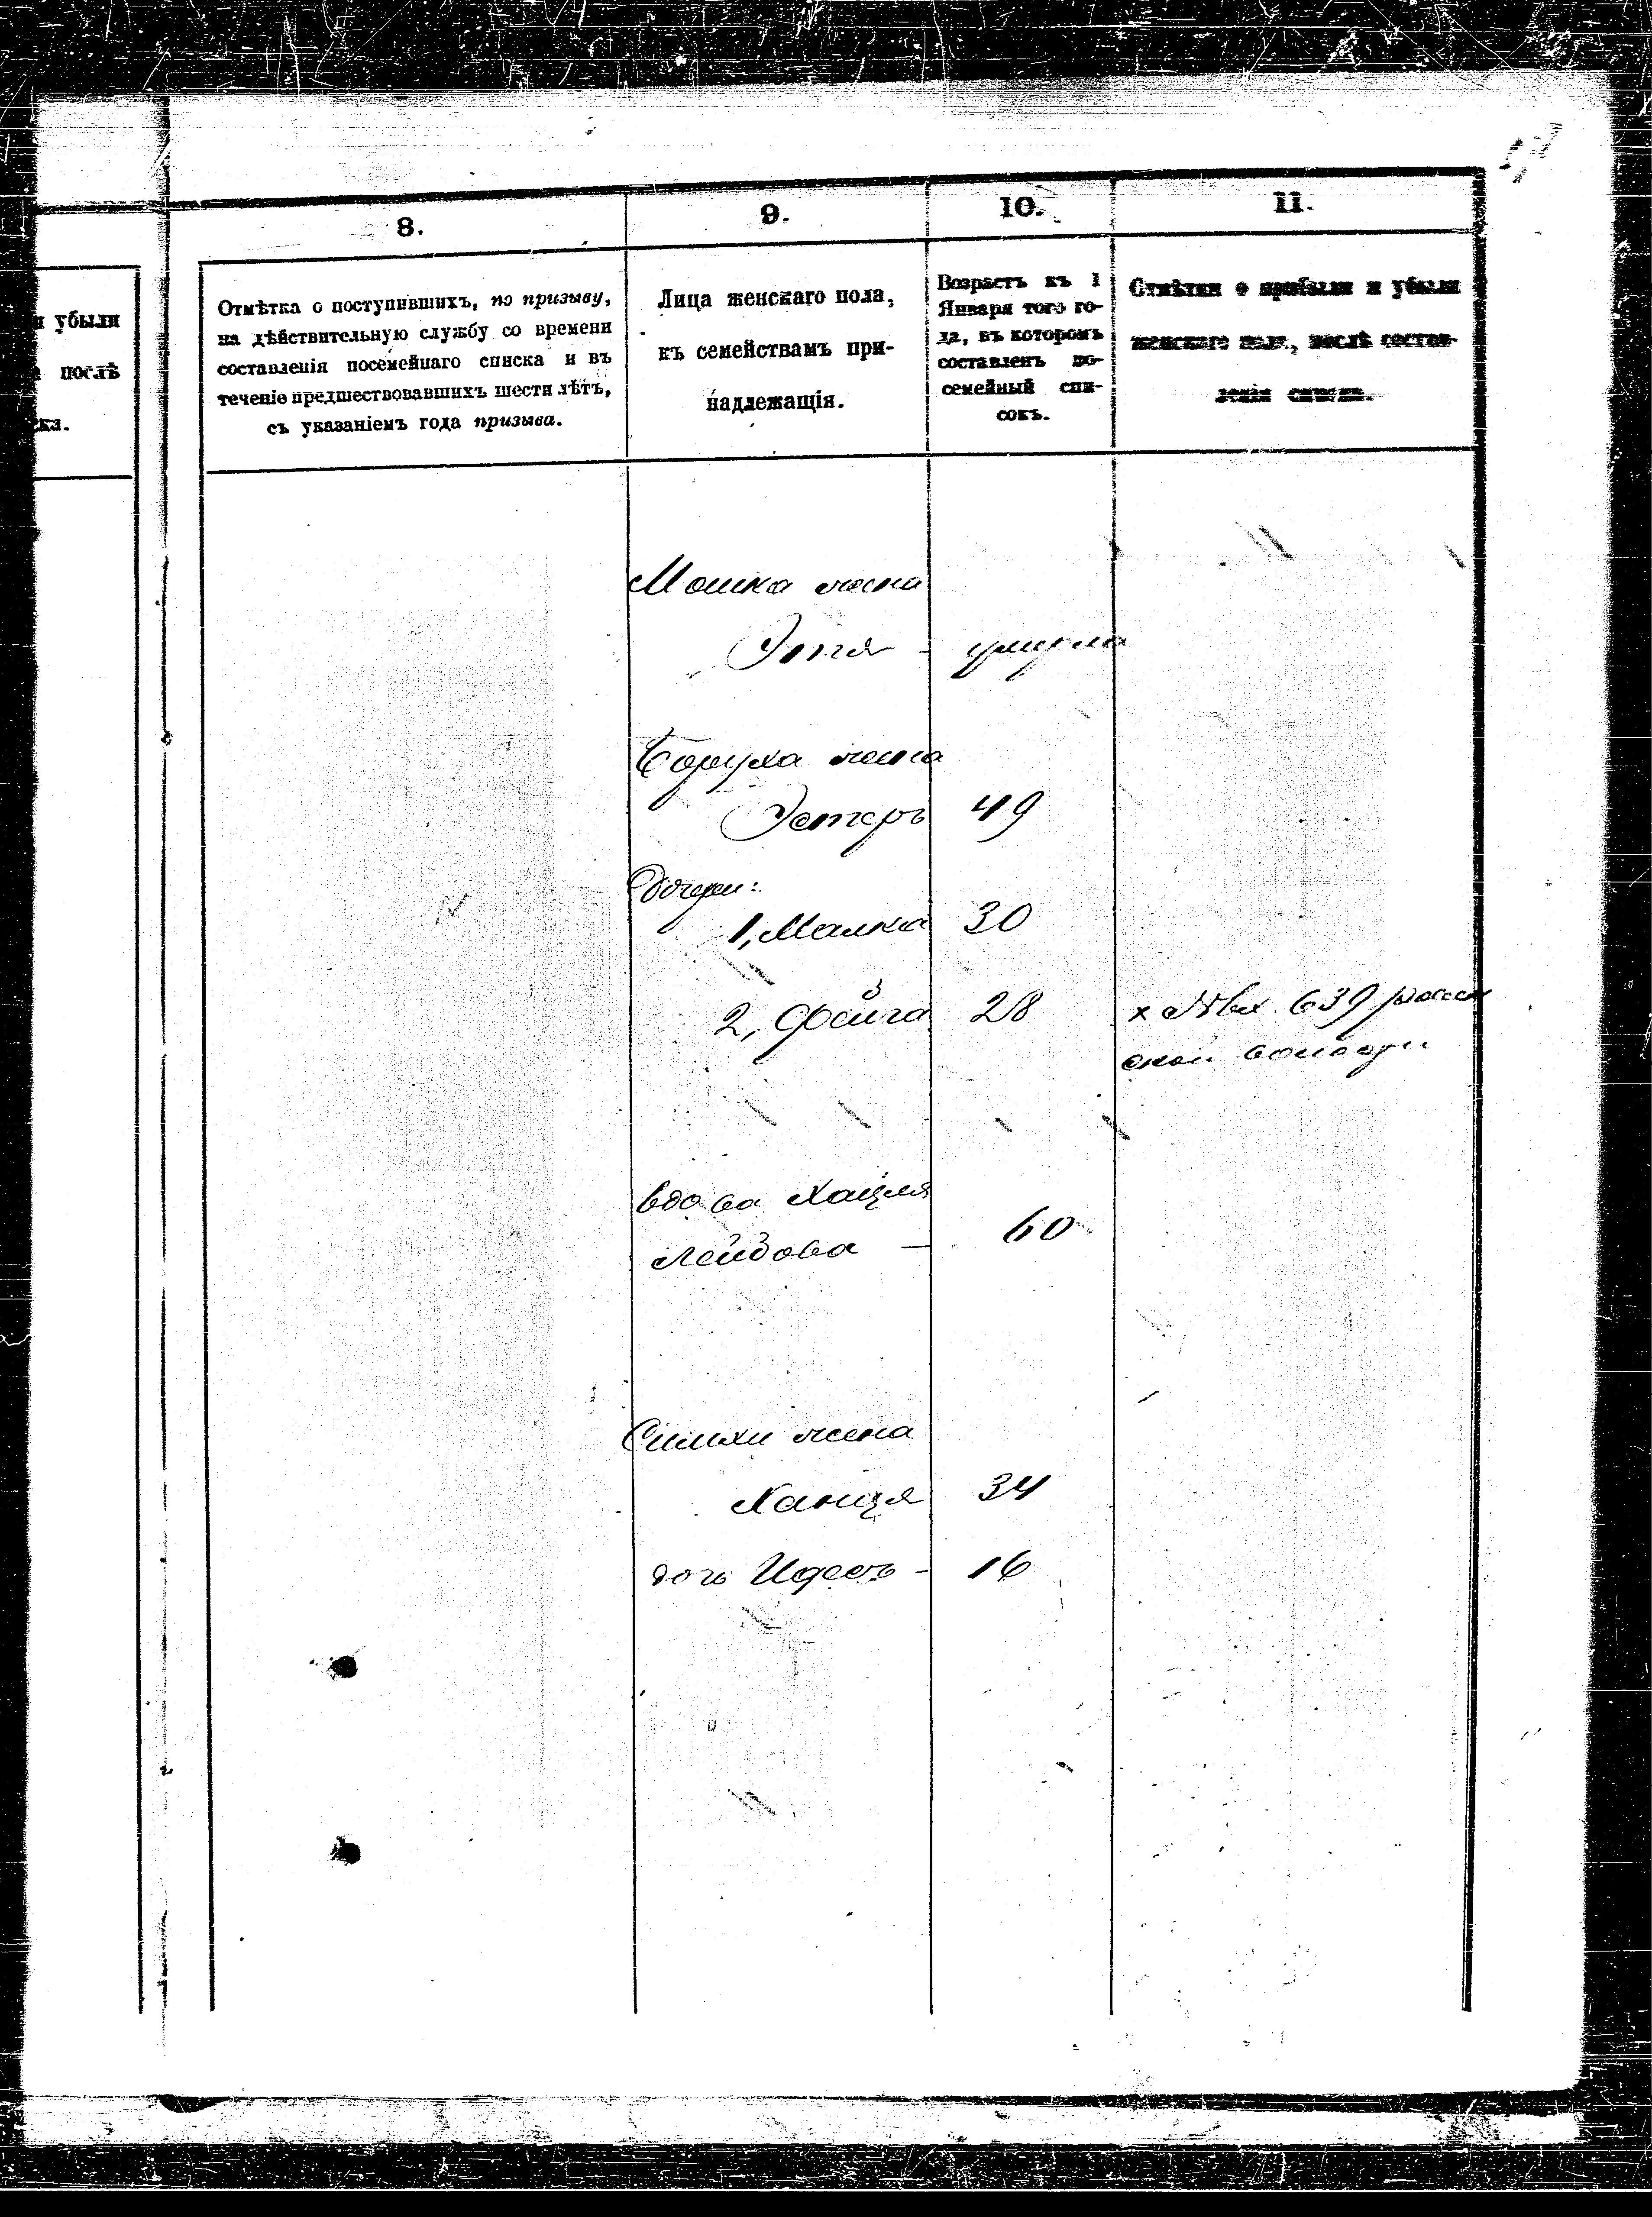 8.
9.
10.
11.
и убыли
послѣ
ка.
Отмѣтка о поступившихъ, по призыву,
на дѣйствительную службу со времени
составленія посемейнаго списка и въ
теченіе предшествовавшихъ шести лѣтъ,
съ указаніемъ года призыва.
Лица женскаго пола,
къ семействамъ при-
надлежащія.
Возрастъ къ 1
Января того го-
да, въ которомъ
составленъ по-
семейный спи-
сокъ.
Отмѣтки о прибыли и убыли
женскаго пола, послѣ состав-
ленія списка.
Мошка жена
Этя - умерла
Боруха жена
Эстеръ 49
Дочери:
1, Малка 30
2, Фейга 28 х № вх 639
ской волости
вдова Хацкля
Лейбова — 60
Симхи жена
Ханця 34
дочь Идесъ - 16